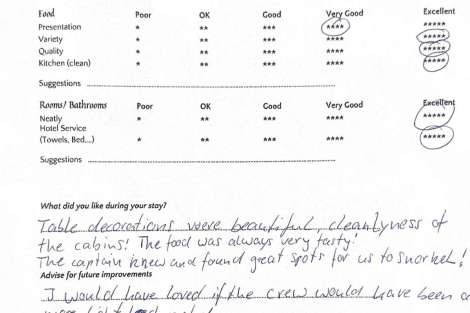 Food Poor OK Good Very Good Excellent
Presentation * ** *** **** *****
Variety * ** *** **** *****
Quality * ** *** **** *****
Kitchen (clean) * ** *** **** *****
Suggestions
Rooms/ Bathrooms Poor OK Good Very Good Excellent
Neatly * ** *** **** *****
Hotel Service
(Towels, Bed...) * ** *** **** *****
Suggestions
What did you like during your stay?
Table decorations were beautiful, cleanlyness of
the cabins! The food was always very tasty!
The captain knew and found great spots for us to snorkel!
Advise for future improvements
I would have loved if the crew would have been a
more